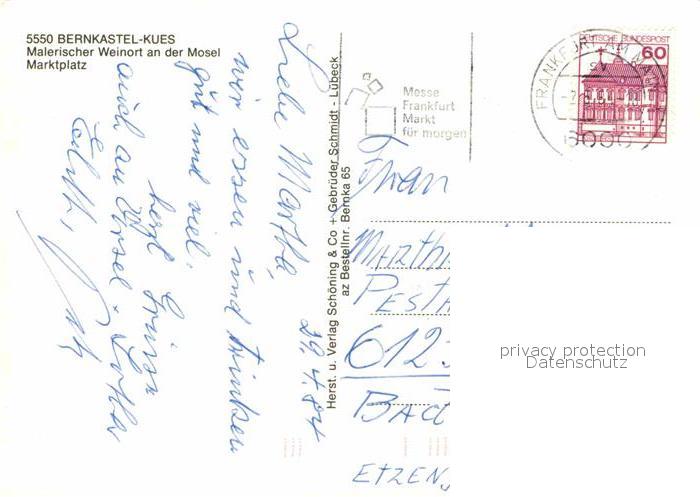 5550 BERNKASTEL-KUES
Malerischer Weinort an der Mosel
Marktplatz
Liebe Martha,
29.4.84
wir essen und trinken
gut und viel.
herzl Grüsse
auch an Ursel + Lothar
Herst. u. Verlag Schöning & Co + Gebrüder Schmidt - Lübeck
az Bestellnr. Bernka 65
Messe
Frankfurt
Markt
für morgen
FRANKFURT AM MAIN
6000
DEUTSCHE BUNDESPOST
60
Frau
Marth
PESTA
612
BAD
ETZEN
privacy protection
Datenschutz